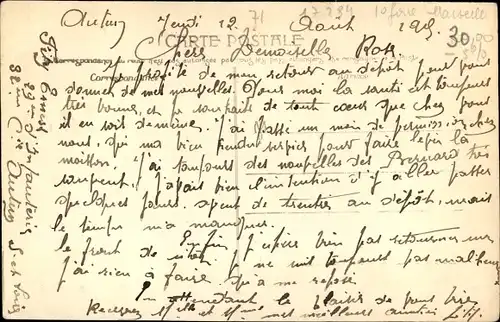 Autun Jeudi 12 Aout 1915
CARTE POSTALE
Chère Demoiselle Rose
Je profite de mon retour au dépôt pour vous
donner de mes nouvelles. Pour moi la santé est toujours
très bonne, et je souhaite de tout cœur que chez vous
il en soit de même. J'ai passé un mois de permission chez
nous, qui m'a bien rendu service pour faire la
moisson. J'ai toujours des nouvelles des Bernard très
souvent, j'avais bien l'intention d'y aller passer
quelques jours avant de rentrer au dépôt, mais
le temps m'a manqué.
Enfin, j'espère bien pas retourner sur
le front de suite, je ne suis toujours pas malheureux
j'ai rien à faire, ça me repose.
En attendant le plaisir de vous lire
Recevez Mlle et Mme mes meilleures amitiés
29e d'Infanterie
32e Cie Autun S-et-Loire
17294
71
30